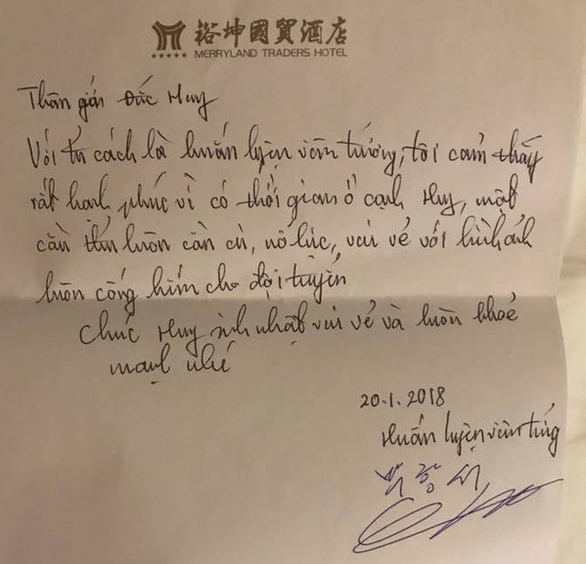 裕坤國貿酒店
MERRYLAND TRADERS HOTEL
Thân gửi Đức Huy
Với tư cách là huấn luyện viên tướng, tôi cảm thấy
rất hạnh phúc vì có thời gian ở cạnh Huy, một
cầu thủ luôn cần cù, nỗ lực, vui vẻ với hình ảnh
luôn cống hiến cho đội tuyển
Chúc Huy sinh nhật vui vẻ và luôn khoẻ
mạnh nhé
20.1.2018
Huấn luyện viên tướng
박항서